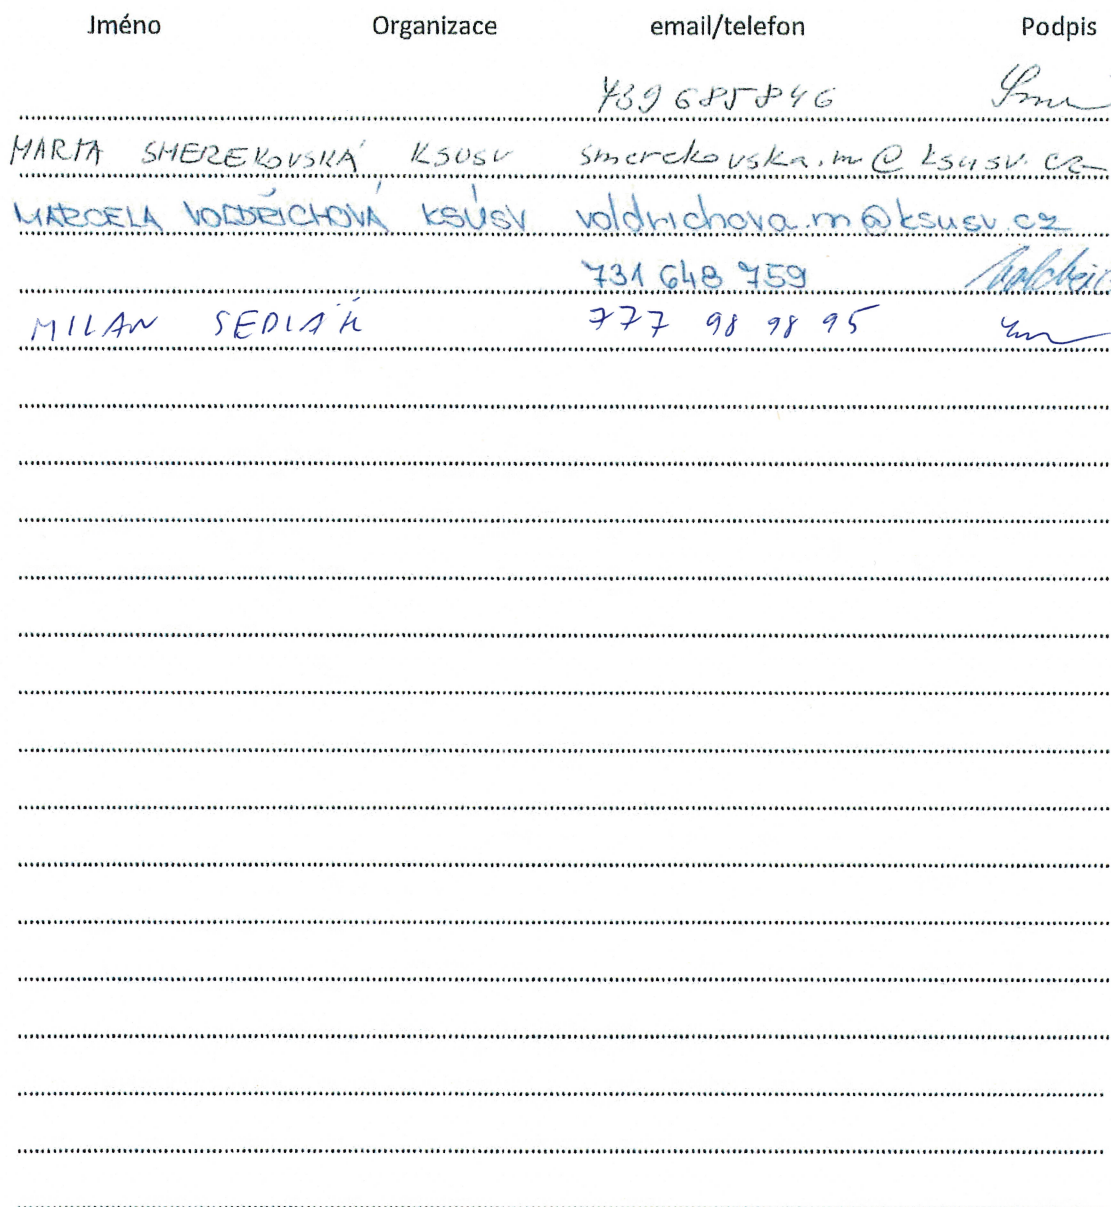 Jméno Organizace email/telefon Podpis
739 685 846
MARTA SMEREKOVSKÁ KSUSV smerekovska.m@ksusv.cz
MARCELA VOLDŘICHOVÁ KSÚSV voldrichova.m@ksusv.cz
731 648 759
MILAN SEDLÁK 777 98 98 95